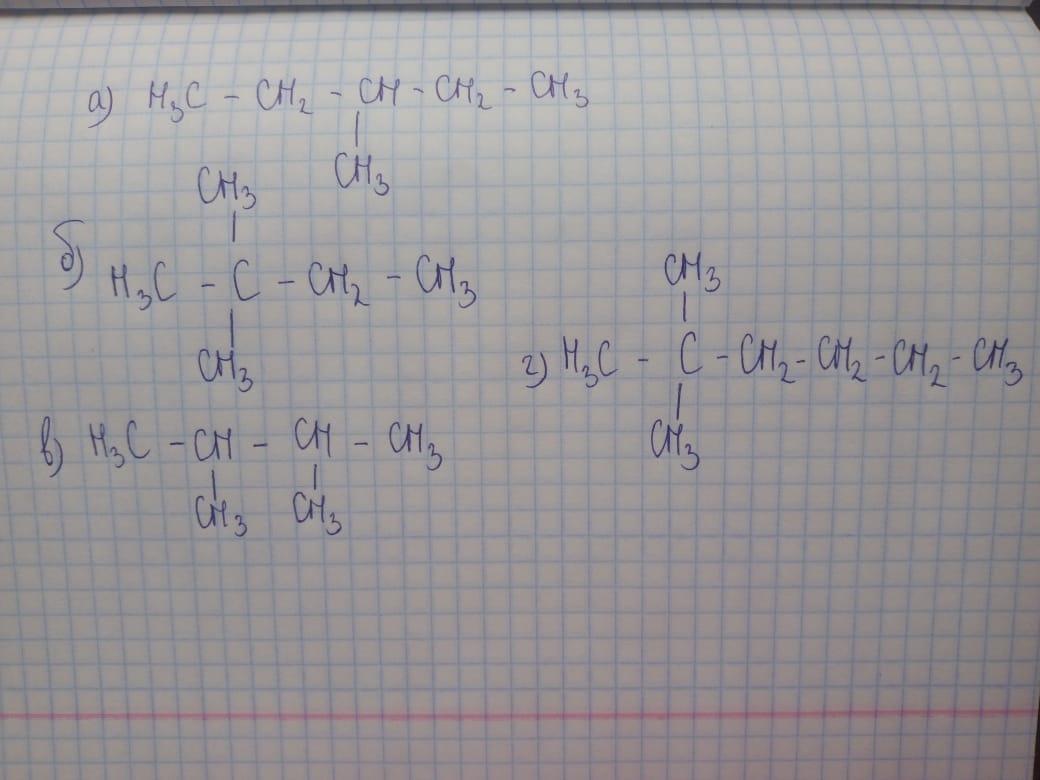 а) H₃C – CH₂ – CH – CH₂ – CH₃
|
CH₃
CH₃
|
б) H₃C – C – CH₂ – CH₃
|
CH₃
в) H₃C – CH – CH – CH₃
| |
CH₃ CH₃
CH₃
|
г) H₃C – C – CH₂ – CH₂ – CH₂ – CH₃
|
CH₃